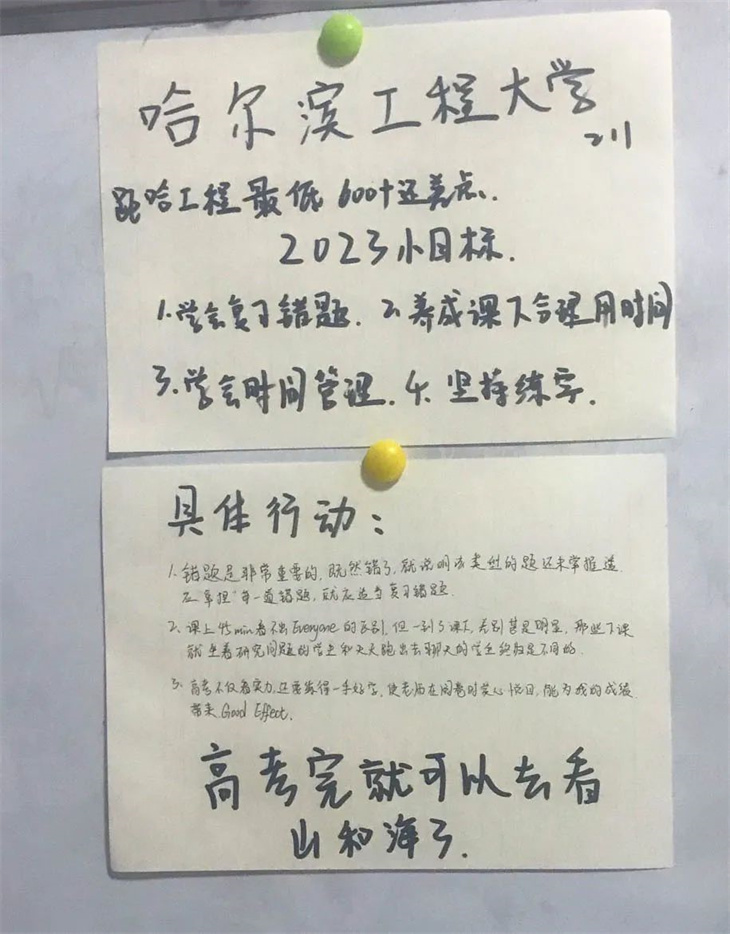 哈尔滨工程大学
211
距哈工程最低600+还差点.
2023小目标.
1.学会复习错题. 2.养成课下合理用时间
3.学会时间管理. 4.坚持练字.
具体行动:
1. 错题是非常重要的, 既然错了, 就说明该类型的题还未掌握透
在掌握每一道错题, 就应适当复习错题.
2. 课上45min看不出Everyone的区别, 但一到了课下, 差别甚是明显, 那些下课
就坐着研究问题的学生和天天跑出去聊天的学生分数是不同的.
3. 高考不仅看实力, 还要写得一手好字, 使老师在阅卷时赏心悦目, 能为我的成绩
带来Good Effect.
高考完就可以去看
山和海了.